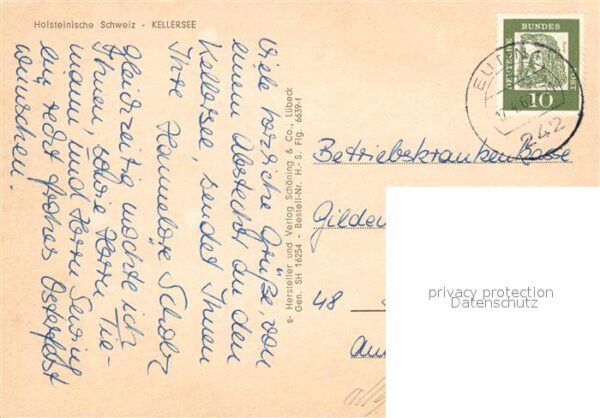 Holsteinische Schweiz - KELLERSEE
Viele herzliche Grüße, von
einem Abstecher an den
Kellersee, sendet Ihnen
Ihre Hannelore Scholz
Gleichzeitig möchte ich
Ihnen, sowie Herrn Tie-
mann und Herrn
ein recht frohes Osterfest
wünschen.
s- Hersteller und Verlag Schöning & Co., Lübeck
Gen. SH 16254 - Bestell-Nr. H.- S. Flg. 6639-1
DEUTSCHE BUNDESPOST
10
EUTIN
242
Betriebskrankenkasse
Gilde
48
privacy protection
Datenschutz